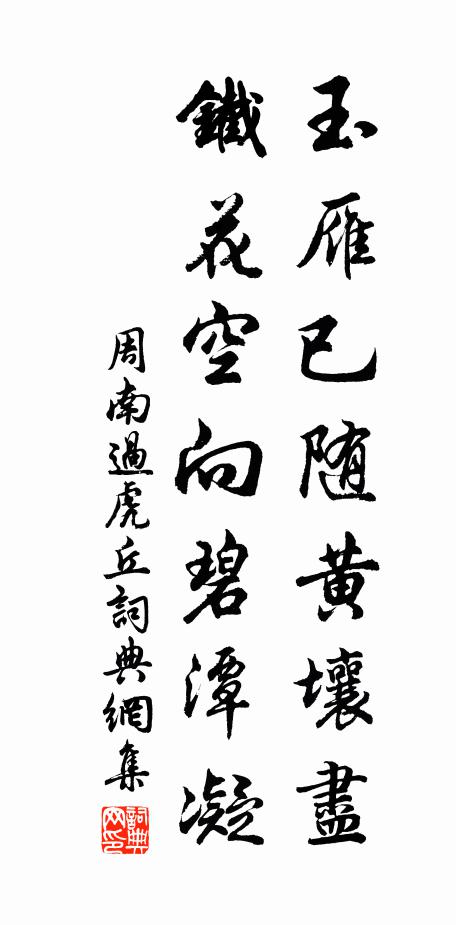 玉雁已随黄壤盡
鐵花空向碧潭凝
周南過虎丘詞典網集
詞典网印